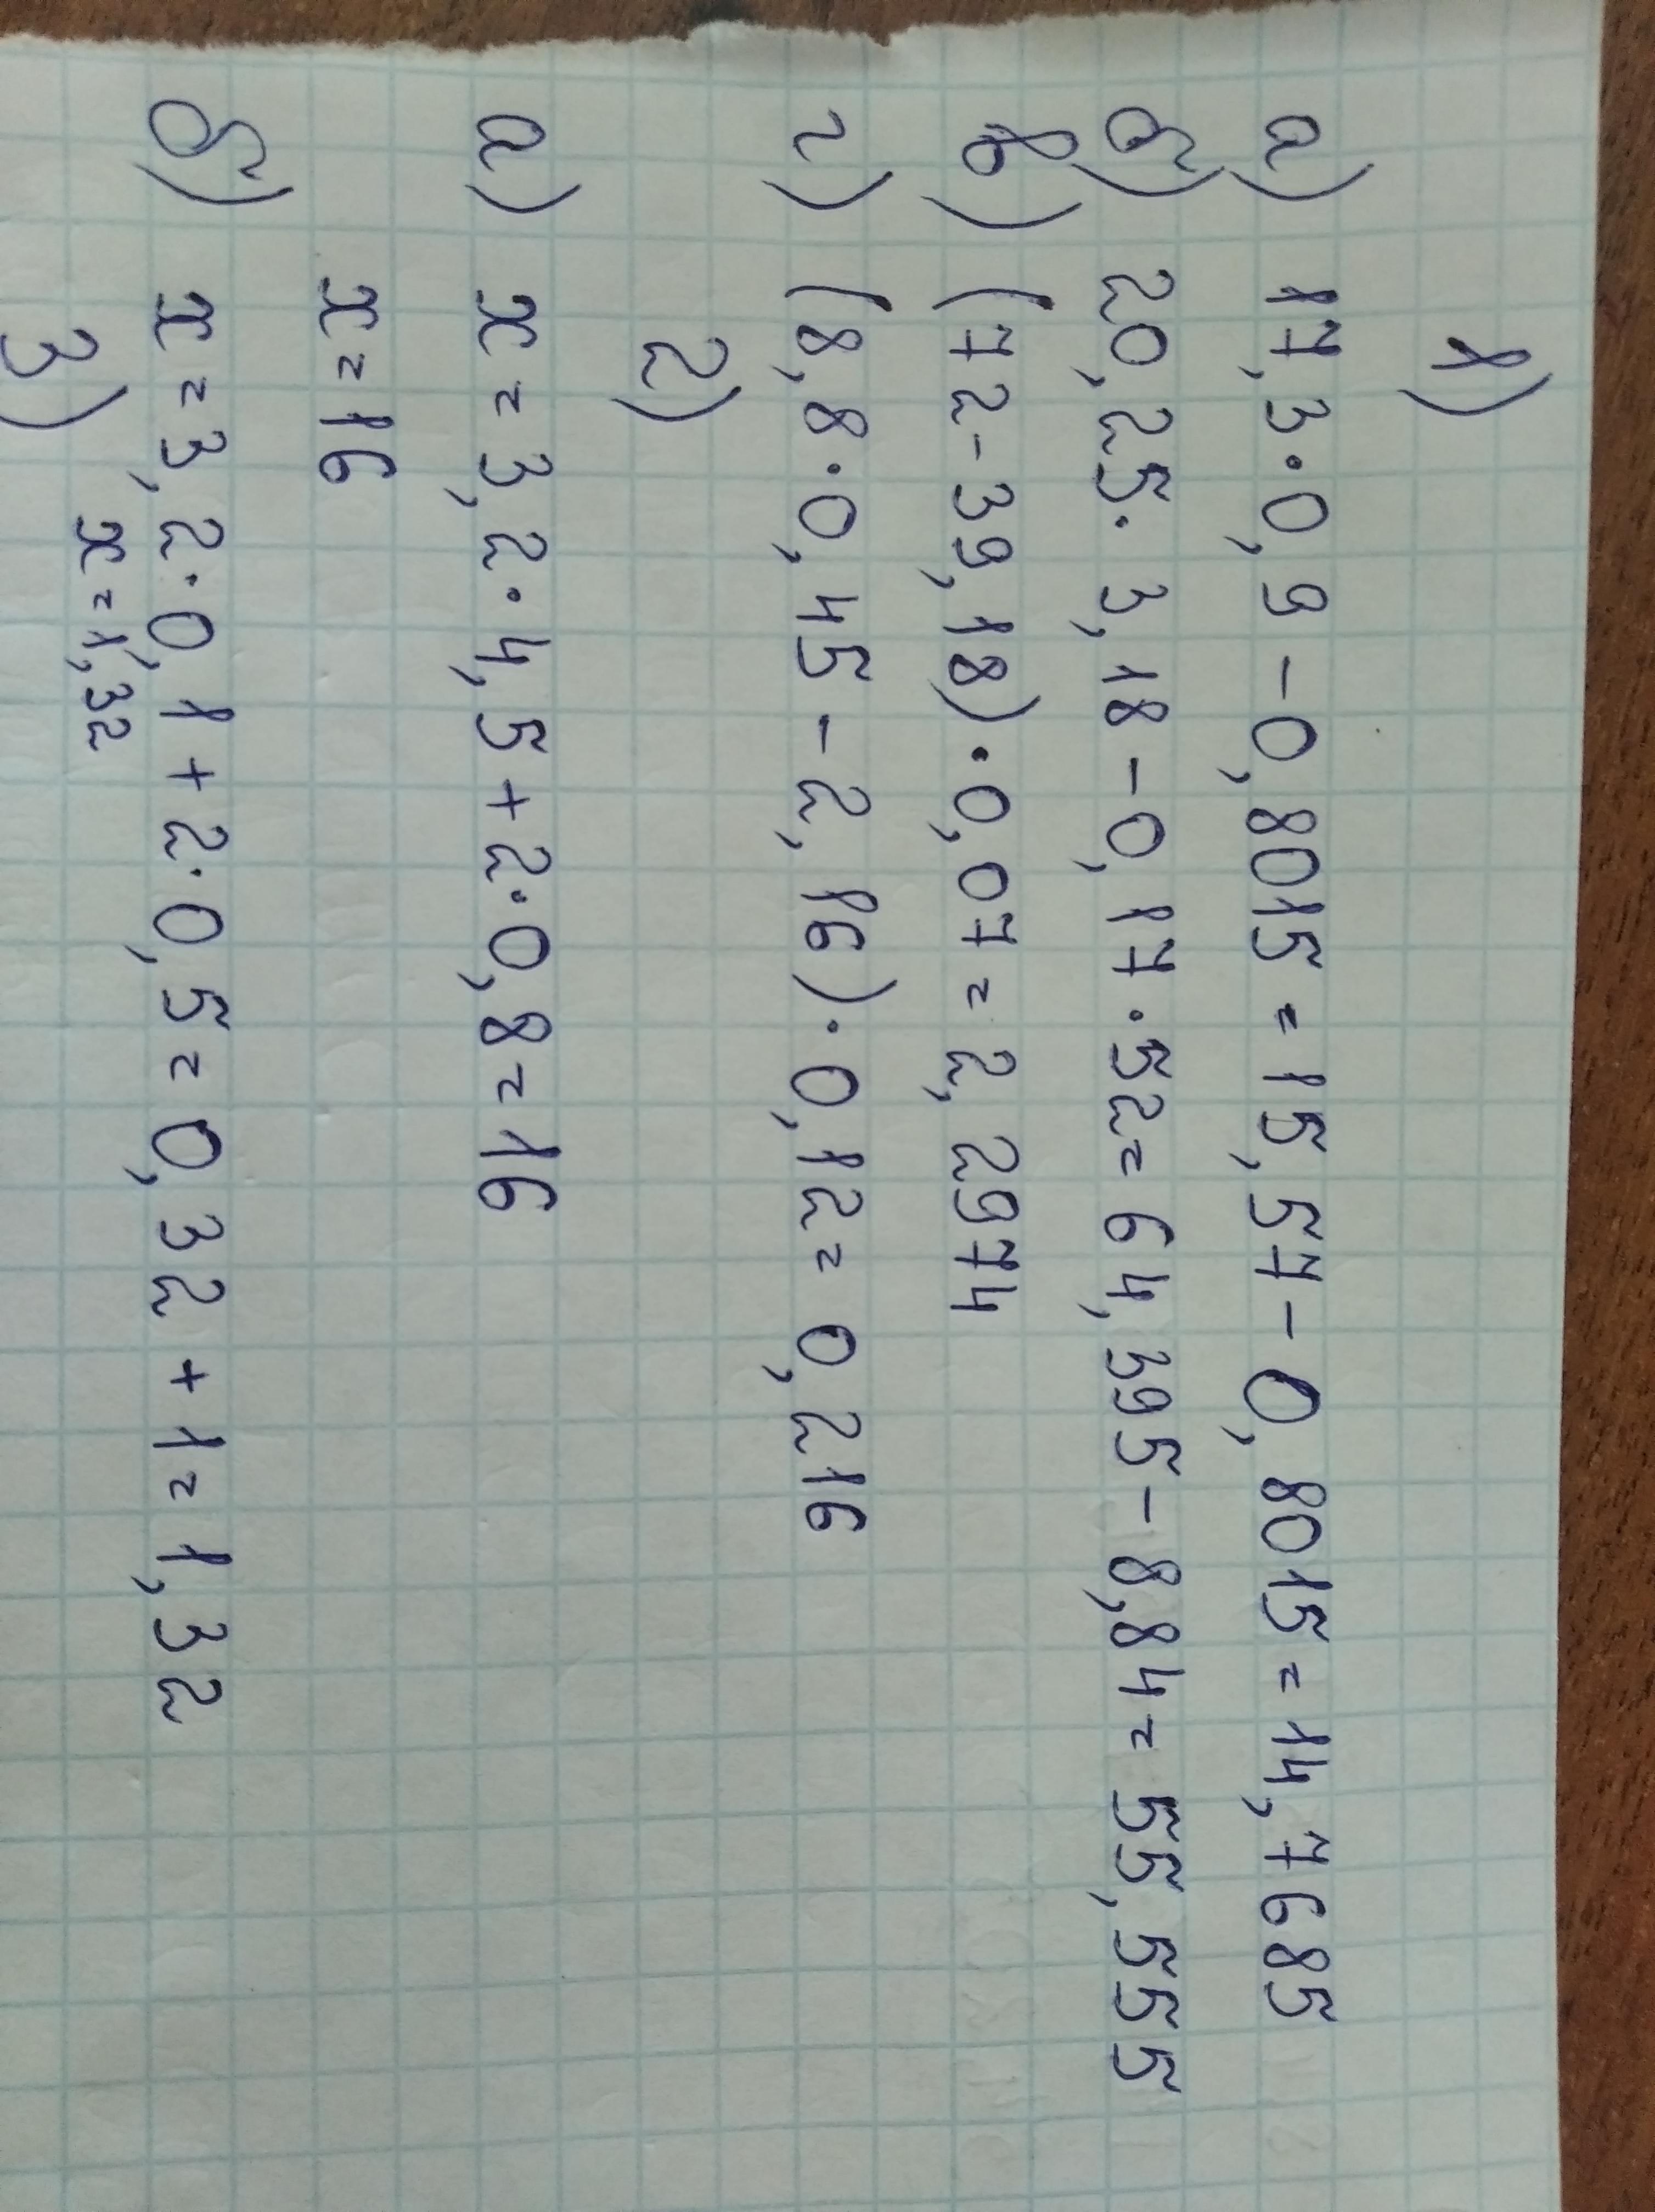 1)
а) 17,3·0,9-0,8015=15,57-0,8015=14,7685
б) 20,25·3,18-0,17·52=64,395-8,84=55,555
в) (72-39,18)·0,07=2,2974
г) (8,8·0,45-2,16)·0,12=0,216
2)
а) x=3,2·4,5+2·0,8=16
x=16
б) x=3,2·0,1+2·0,5=0,32+1=1,32
x=1,32
3)